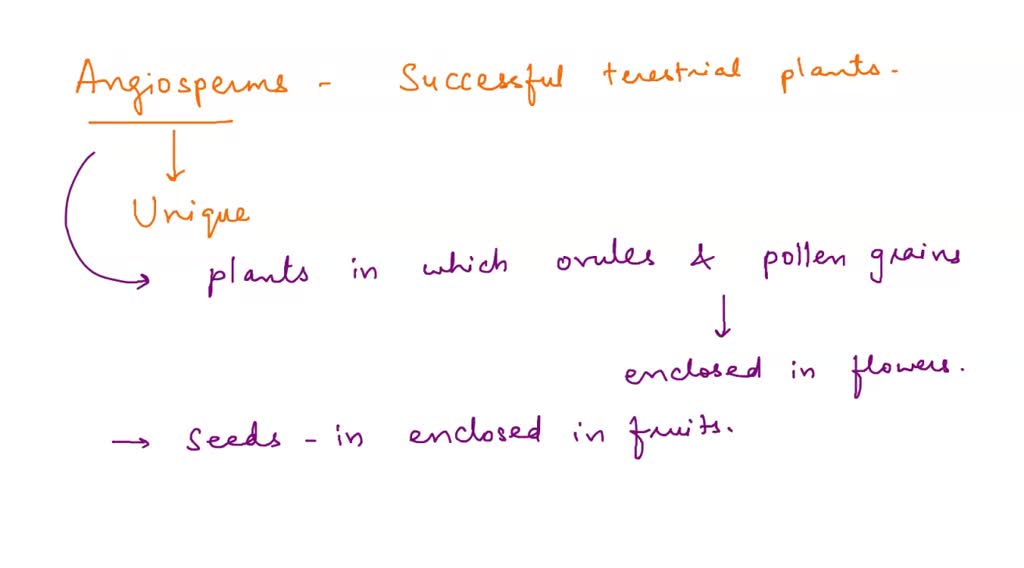 Angiosperms - Successful terestrial plants.
Unique
plants in which ovules & pollen grains
enclosed in flowers.
→ seeds - in enclosed in fruits.